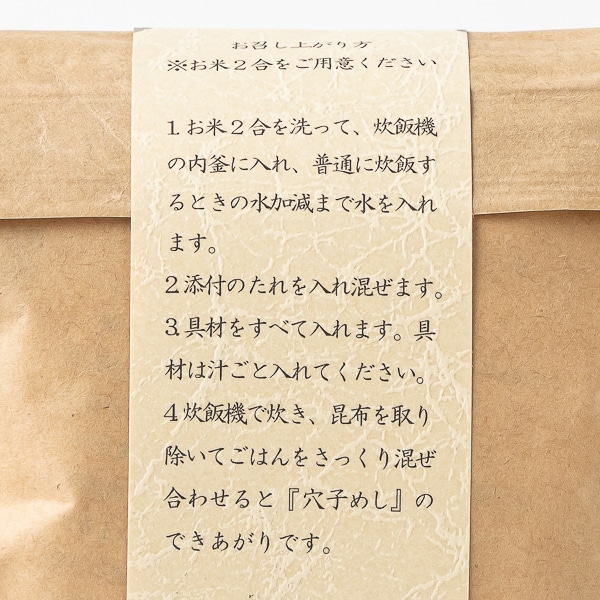 お召し上がり方
※お米２合をご用意ください
1.お米２合を洗って、炊飯機
の内釜に入れ、普通に炊飯す
るときの水加減まで水を入れ
ます。
2.添付のたれを入れ混ぜます。
3.具材をすべて入れます。具
材は汁ごと入れてください。
4.炊飯機で炊き、昆布を取り
除いてごはんをさっくり混ぜ
合わせると『穴子めし』の
できあがりです。